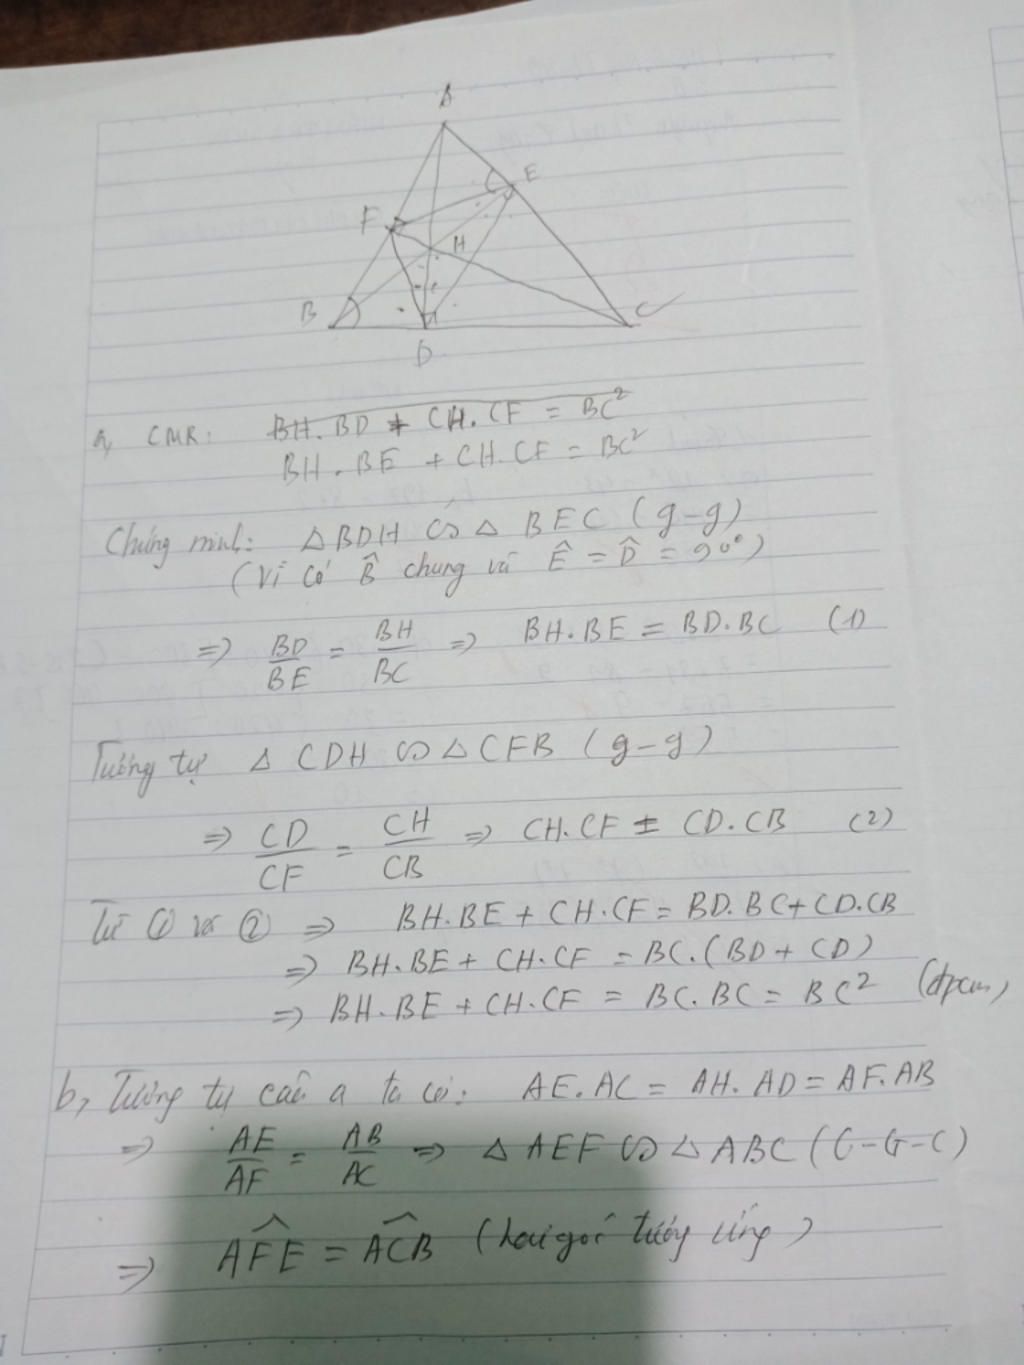 A
E
F
H
B
C
D
a, CMR: BH.BD + CH.CF = BC²
BH.BE + CH.CF = BC²
Chứng minh: △BDH ∽ △BEC (g-g)
(Vì có B̂ chung và Ê = D̂ = 90°)
=> BD/BE = BH/BC => BH.BE = BD.BC (1)
Tương tự △CDH ∽ △CFB (g-g)
=> CD/CF = CH/CB => CH.CF = CD.CB (2)
Từ ① và ② => BH.BE + CH.CF = BD.BC + CD.CB
=> BH.BE + CH.CF = BC.(BD + CD)
=> BH.BE + CH.CF = BC.BC = BC² (đpcm)
b, Tương tự câu a ta có: AE.AC = AH.AD = AF.AB
=> AE/AF = AB/AC => △AEF ∽ △ABC (C-G-C)
=> AFE^ = ACB^ (hai góc tương ứng)